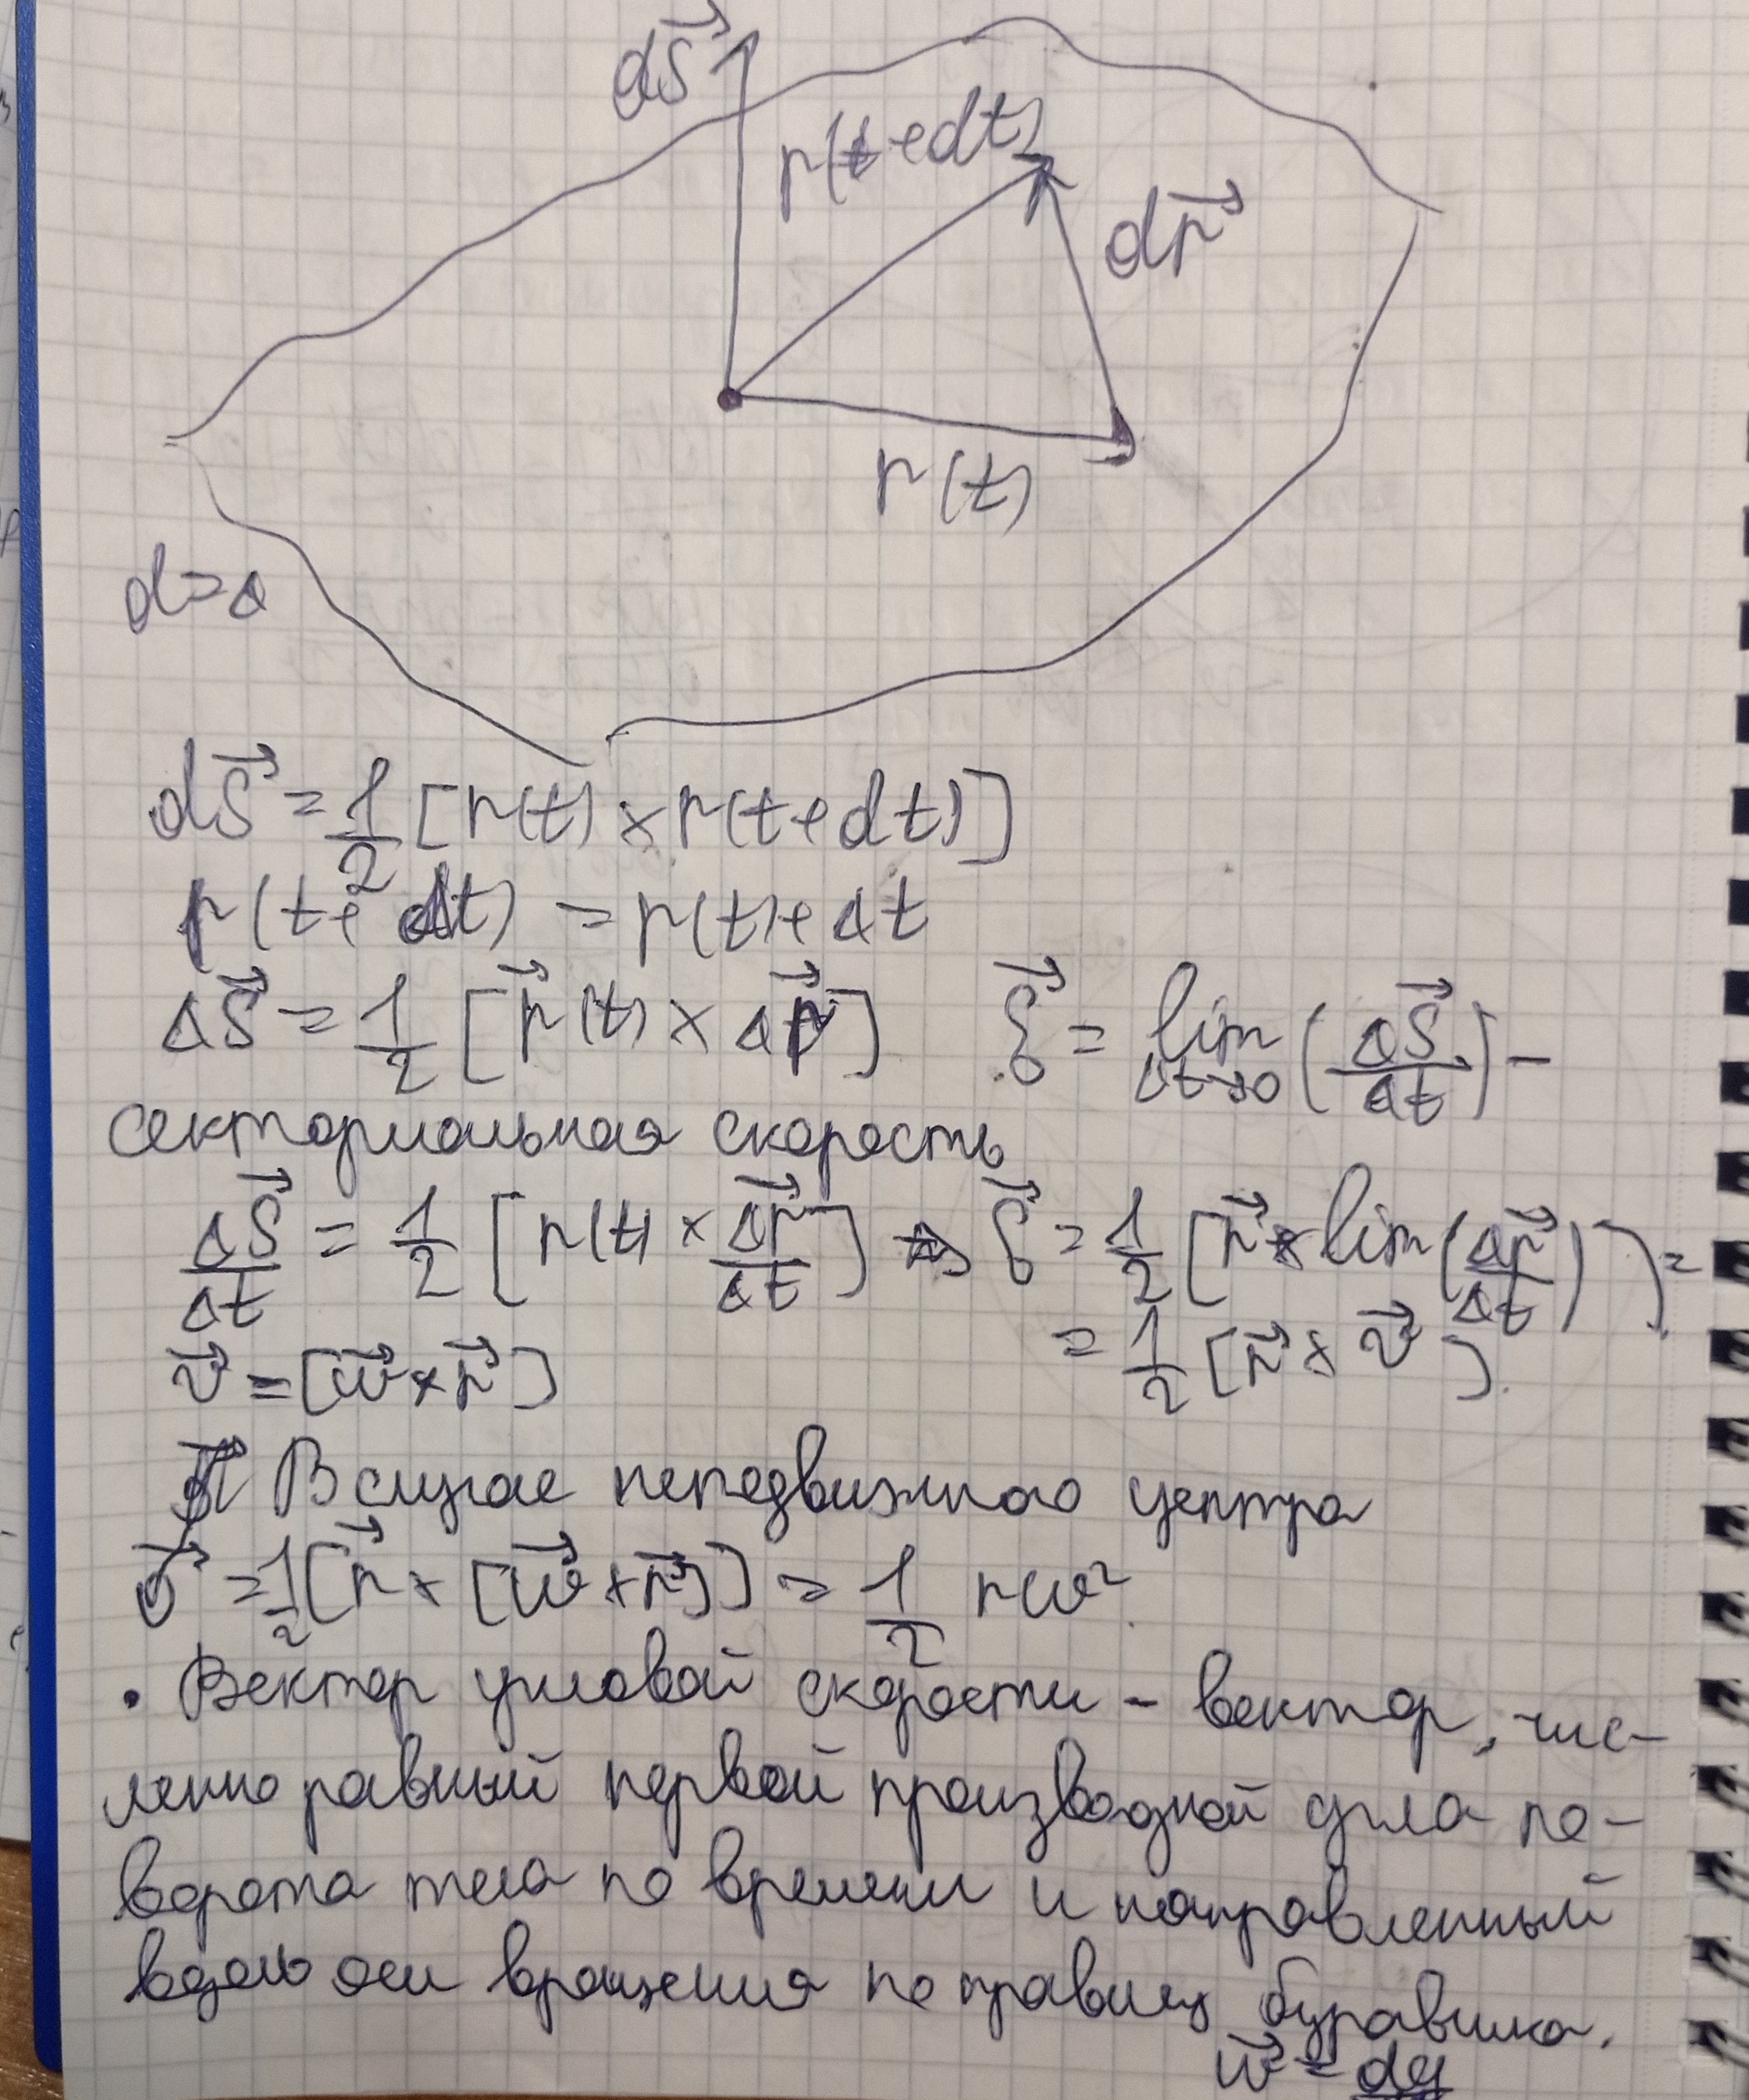 dS⃗
r(t+dt)
dr⃗
r(t)
d=Δ
dS⃗ = 1/2 [r(t) × r(t+dt)]
r(t+Δt) = r(t)+Δt
ΔS⃗ = 1/2 [r⃗(t) × Δr⃗] σ⃗ = lim Δt→0 (ΔS⃗/Δt) –
секториальная скорость
ΔS⃗/Δt = 1/2 [r(t) × Δr⃗/Δt] ⇒ σ⃗ = 1/2 [r⃗ × lim (Δr⃗/Δt)] =
= 1/2 [r⃗ × v⃗].
v⃗ = [w⃗ × r⃗]
В случае неподвижного центра
σ⃗ = 1/2 [r⃗ × [w⃗ × r⃗]] = 1/2 rw²
• Вектор угловой скорости – вектор, чис-
ленно равный первой производной угла по-
ворота тела по времени и направленный
вдоль оси вращения по правилу буравчика.
w⃗ = dφ